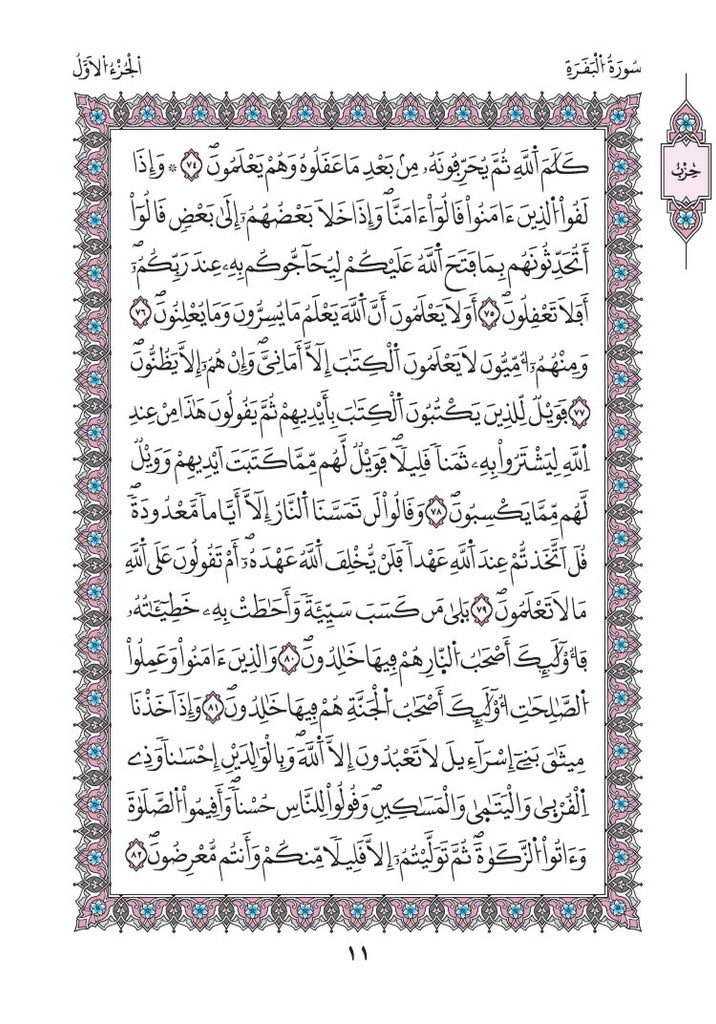 سُورَةُ الْبَقَرَةِ
الْجُزْءُ الْأَوَّلُ
حِزْبٌ
كَلَٰمَ اَ۬للَّهِ ثُمَّ يُحَرِّفُونَهُۥ مِنۢ بَعْدِ مَا عَقَلُوهُ وَهُمْ يَعْلَمُونَۖ ٧٤ ۞ وَإِذَا
لَقُواْ اُ۬لذِينَ ءَامَنُواْ قَالُوٓاْ ءَامَنَّاۖ وَإِذَا خَلَا بَعْضُهُمُۥٓ إِلَىٰ بَعْضٖ قَالُوٓاْ
أَتُحَدِّثُونَهُم بِمَا فَتَحَ اَ۬للَّهُ عَلَيْكُمْ لِيُحَآجُّوكُم بِهِۦ عِندَ رَبِّكُمُۥٓۖ
أَفَلَا تَعْقِلُونَۖ ٧٥ أَوَلَا يَعْلَمُونَ أَنَّ اَ۬للَّهَ يَعْلَمُ مَا يُسِرُّونَ وَمَا يُعْلِنُونَۖ ٧٦
وَمِنْهُمُۥٓ أُمِّيُّونَ لَا يَعْلَمُونَ اَ۬لْكِتَٰبَ إِلَّآ أَمَانِيَّۖ وَإِنْ هُمُۥٓ إِلَّا يَظُنُّونَۖ
٧٧ فَوَيْلٞ لِّلذِينَ يَكْتُبُونَ اَ۬لْكِتَٰبَ بِأَيْدِيهِمْ ثُمَّ يَقُولُونَ هَٰذَا مِنْ عِندِ
اِ۬للَّهِ لِيَشْتَرُواْ بِهِۦ ثَمَناٗ قَلِيلاٗۖ فَوَيْلٞ لَّهُم مِّمَّا كَتَبَتَ اَيْدِيهِمْ وَوَيْلٞ
لَّهُم مِّمَّا يَكْسِبُونَۖ ٧٨ وَقَالُواْ لَن تَمَسَّنَا اَ۬لنَّارُ إِلَّآ أَيَّاماٗ مَّعْدُودَةٗۖ
قُلَ اَتَّخَذتُّمْ عِندَ اَ۬للَّهِ عَهْداٗ فَلَنْ يُّخْلِفَ اَ۬للَّهُ عَهْدَهُۥٓۖ أَمْ تَقُولُونَ عَلَى اَ۬للَّهِ
مَا لَا تَعْلَمُونَۖ ٧٩ بَلَىٰ مَن كَسَبَ سَيِّئَةٗ وَأَحَٰطَتْ بِهِۦ خَطِيٓـَٰٔتُهُۥ
فَأُوْلَٰٓئِكَ أَصْحَٰبُ اُ۬لنّ۪ارِ هُمْ فِيهَا خَٰلِدُونَۖ ٨٠ وَالذِينَ ءَامَنُواْ وَعَمِلُواْ
اُ۬لصَّٰلِحَٰتِ أُوْلَٰٓئِكَ أَصْحَٰبُ اُ۬لْجَنَّةِ هُمْ فِيهَا خَٰلِدُونَۖ ٨١ وَإِذَ اَخَذْنَا
مِيثَٰقَ بَنِےٓ إِسْرَآءِيلَ لَا تَعْبُدُونَ إِلَّا اَ۬للَّهَۖ وَبِالْوَٰلِدَيْنِ إِحْسَٰناٗ وَذِے
اِ۬لْقُرْب۪ىٰ وَالْيَتَٰم۪ىٰ وَالْمَسَٰكِينِۖ وَقُولُواْ لِلنَّاسِ حُسْناٗ وَأَقِيمُواْ اُ۬لصَّلَوٰةَ
وَءَاتُواْ اُ۬لزَّكَوٰةَۖ ثُمَّ تَوَلَّيْتُمُۥٓ إِلَّا قَلِيلاٗ مِّنكُمْ وَأَنتُم مُّعْرِضُونَۖ ٨٢
١١